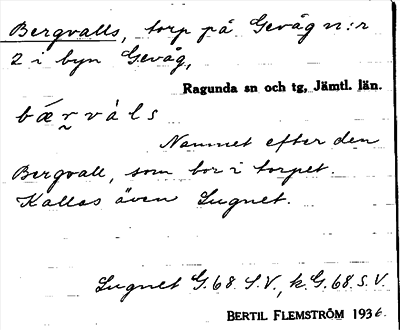 Bergvalls, torp på Gevåg n:r
2 i byn Gevåg,
Ragunda sn och tg, Jämtl. län.
bǽr̰vàls
Namnet efter den
Bergvall, som bor i torpet.
Kallas även Lugnet.
Lugnet G.68.S.V., k.G.68.S.V.
BERTIL FLEMSTRÖM 1936.